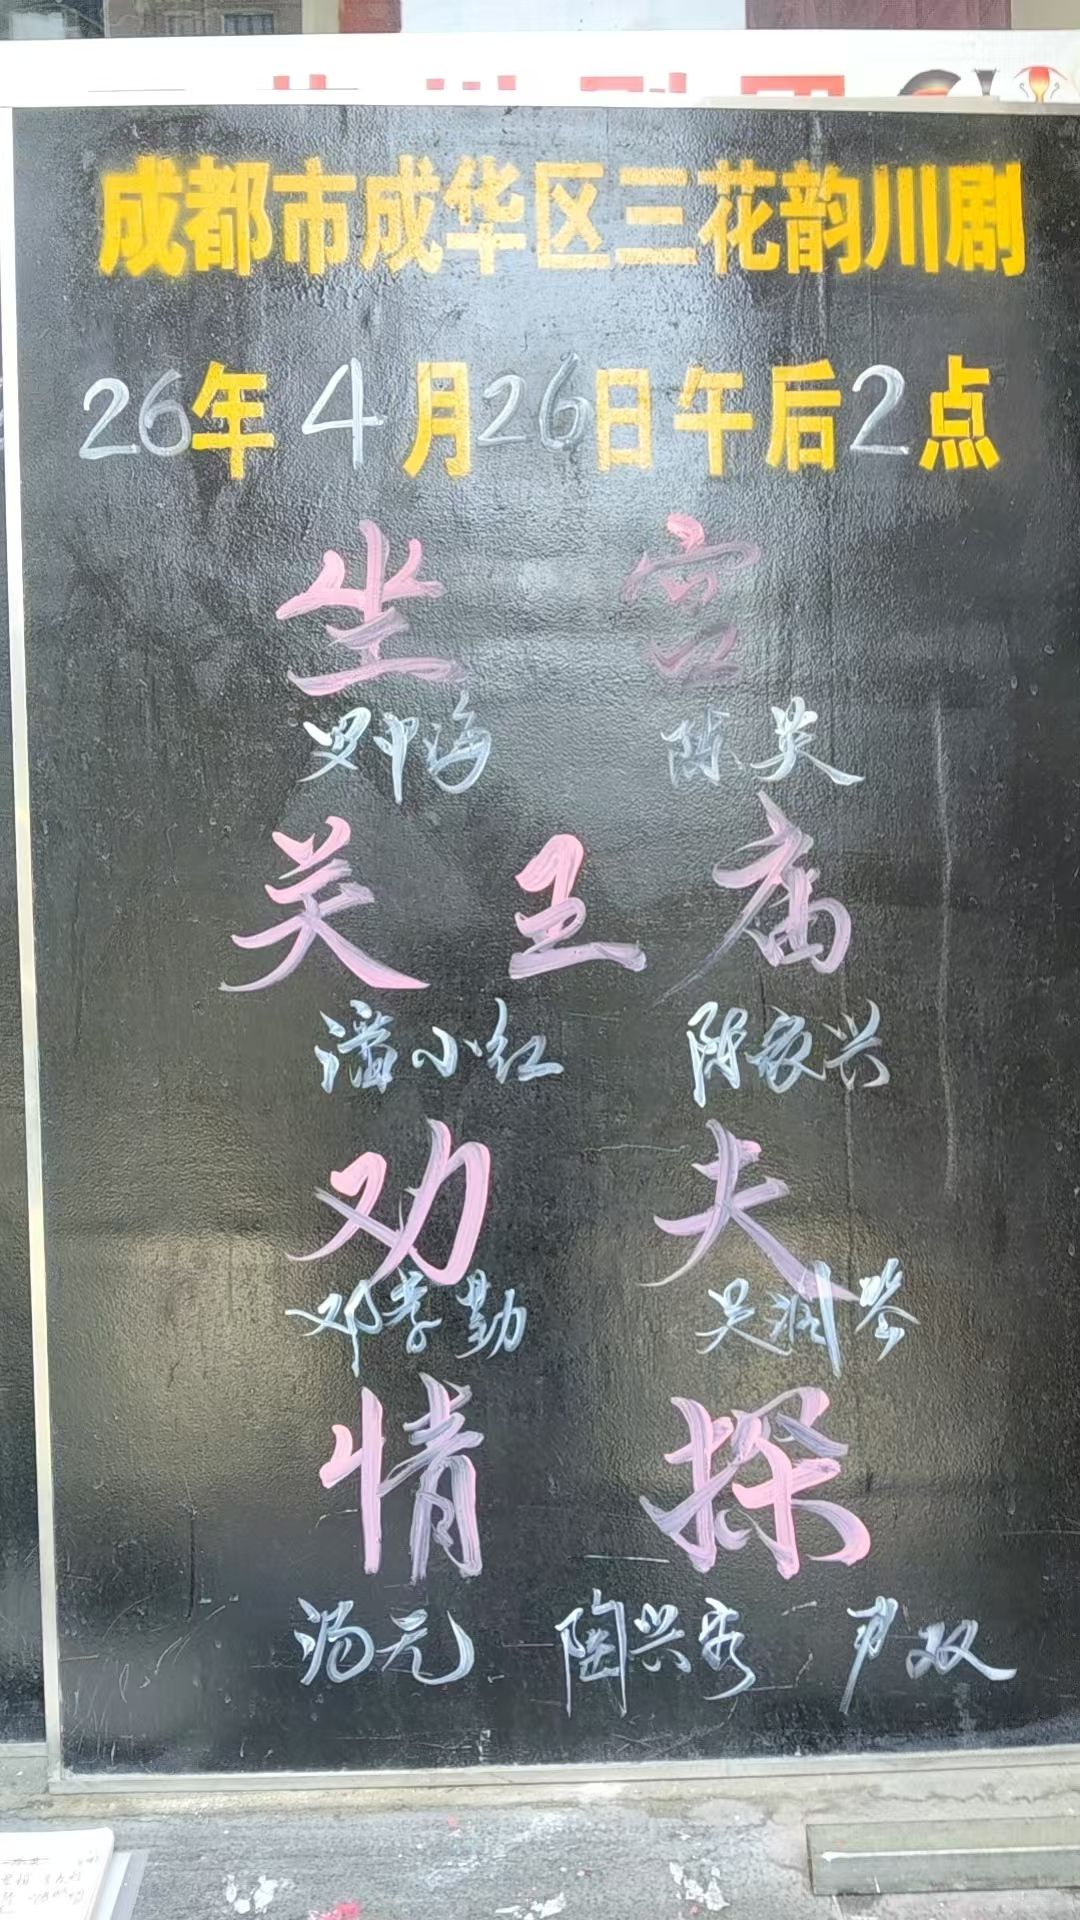 成都市成华区三花韵川剧
26年4月26日午后2点
坐宫
罗中海 陈英
关王庙
潘小红 陈家兴
劝夫
邓孝勤 吴润莹
情探
汤元 陶兴秀 尹双